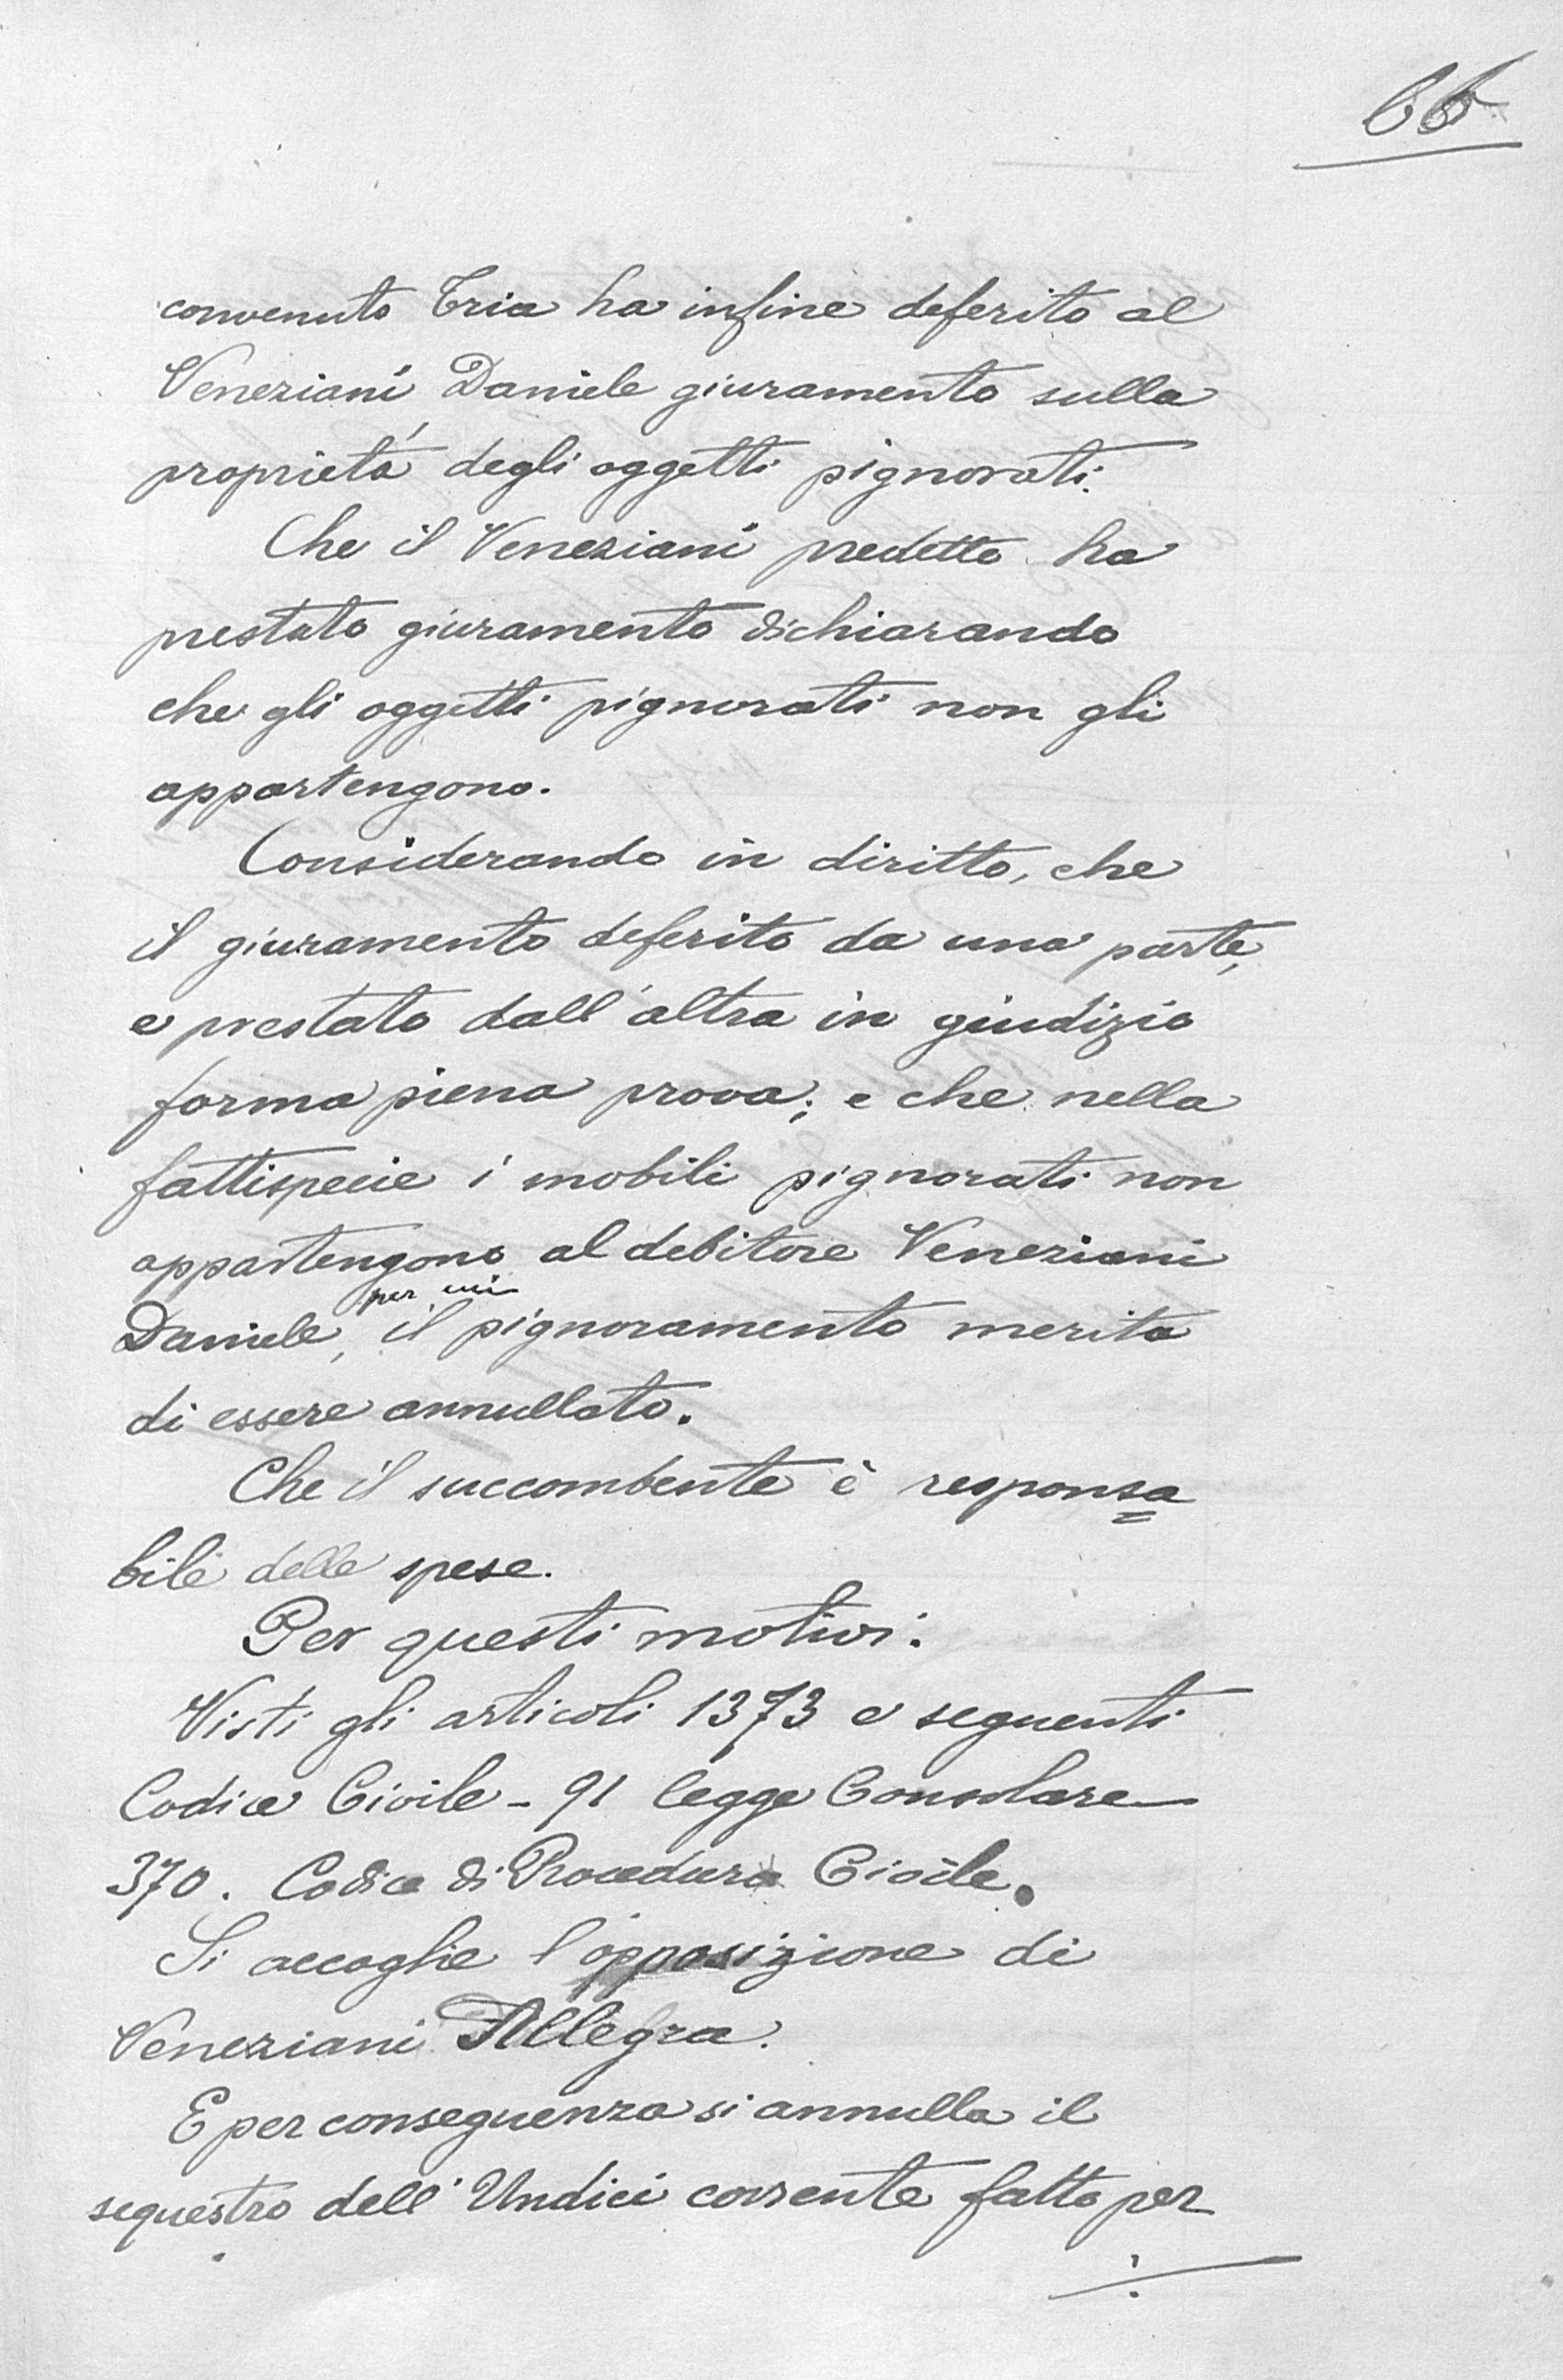 66
convenuto Tria ha infine deferito al
Veneziani Daniele giuramento sulla
proprietá degli oggetti pignorati.
Che il Veneziani predetto ha
prestato giuramento dichiarando
che gli oggetti pignorati non gli
appartengono.
Considerando in diritto, che
il giuramento deferito da una parte,
e prestato dall'altra in giudizio
forma piena prova; e che nella
fattispecie i mobili pignorati non
appartengono al debitore Veneziani
per cui
Daniele, il pignoramento merita
di essere annullato.
Che il succombente è responsa
bile delle spese.
Per questi motivi:
Visti gli articoli 1373 e seguenti
Codice Civile - 91 legge Consolare —
370. Codice di Procedura Civile.
Si accoglie l'opposizione di
Veneziani Allegra.
E per conseguenza si annulla il
sequestro dell'Undici corrente fatto per